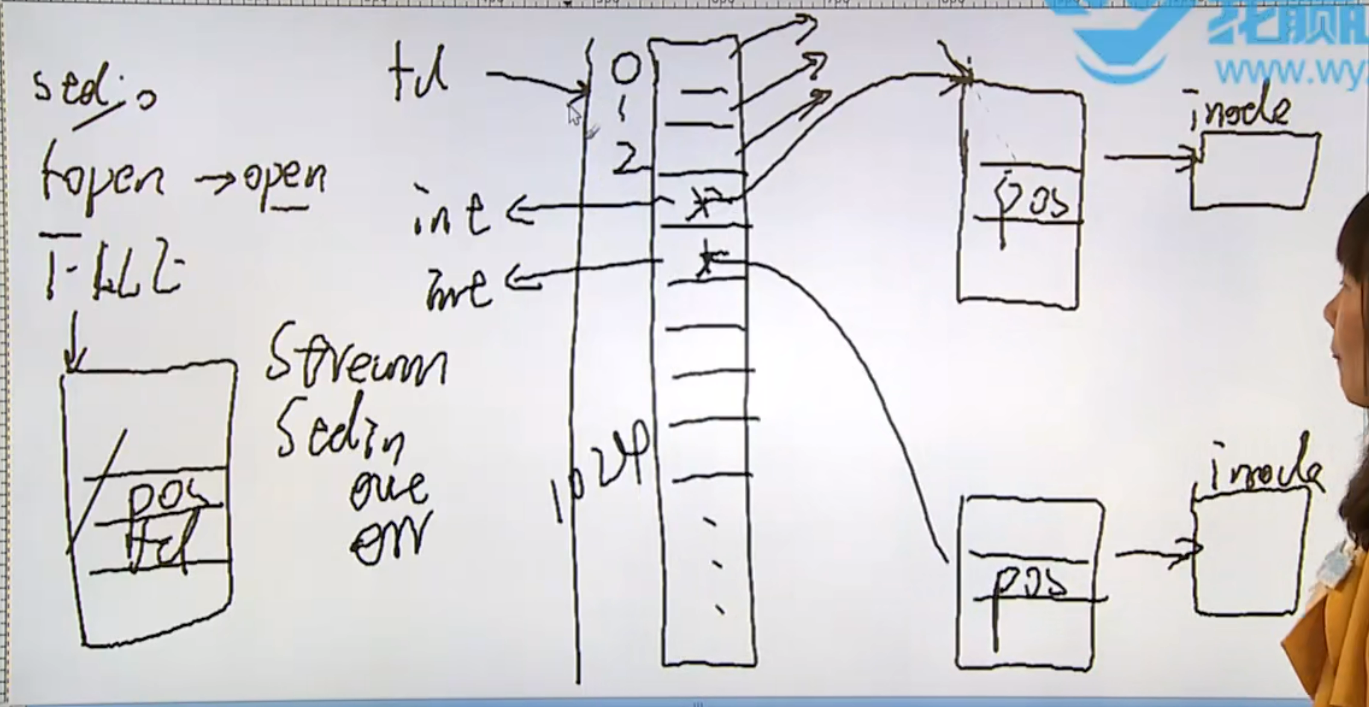 stdio
fopen → open
FILE
pos
fd
Stream
Stdin
out
err
fd
0
1
2
int
int
1024
*
*
pos
inode
pos
inode
www.wy